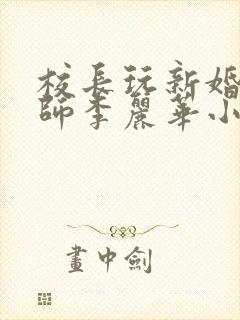 校長玩新婚
師李麗華小
畫中劍